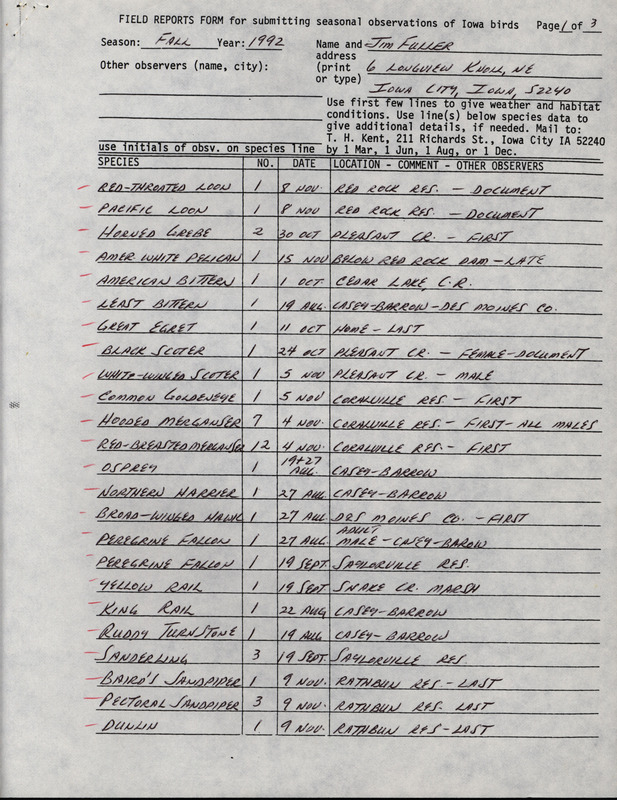 FIELD REPORTS FORM for submitting seasonal observations of Iowa birds Page 1 of 3
Season: FALL Year: 1992 Name and JIM FULLER
address
Other observers (name, city): (print 6 LONGVIEW KNOLL, NE
or type) IOWA CITY, IOWA, 52240
Use first few lines to give weather and habitat
conditions. Use line(s) below species data to
give additional details, if needed. Mail to:
T. H. Kent, 211 Richards St., Iowa City IA 52240
use initials of obsv. on species line by 1 Mar, 1 Jun, 1 Aug, or 1 Dec.
SPECIES NO. DATE LOCATION - COMMENT - OTHER OBSERVERS
RED-THROATED LOON 1 8 NOV. RED ROCK RES. - DOCUMENT
PACIFIC LOON 1 8 NOV RED ROCK RES. - DOCUMENT
HORNED GREBE 2 30 OCT PLEASANT CR. - FIRST
AMER WHITE PELICAN 1 15 NOV BELOW RED ROCK DAM - LATE
AMERICAN BITTERN 1 1 OCT CEDAR LAKE, C.R.
LEAST BITTERN 1 19 AUG. CASEY-BARROW-DES MOINES CO.
GREAT EGRET 1 11 OCT HOME - LAST
BLACK SCOTER 1 24 OCT PLEASANT CR. - FEMALE-DOCUMENT
WHITE-WINGED SCOTER 1 5 NOV PLEASANT CR. - MALE
COMMON GOLDENEYE 1 5 NOV CORALVILLE RES - FIRST
HOODED MERGANSER 7 4 NOV. CORALVILLE RES. - FIRST-ALL MALES
RED-BREASTED MERGANSER 12 4 NOV. CORALVILLE RES. - FIRST
OSPREY 1 19+27 AUG. CASEY-BARROW
NORTHERN HARRIER 1 27 AUG. CASEY-BARROW
BROAD-WINGED HAWK 1 27 AUG. DES MOINES CO. - FIRST
PEREGRINE FALLON 1 27 AUG. ADULT MALE - CASEY-BAROW
PEREGRINE FALLON 1 19 SEPT. SAYLORVILLE RES.
YELLOW RAIL 1 19 SEPT SNAKE CR. MARSH
KING RAIL 1 22 AUG CASEY-BARROW
RUDDY TURNSTONE 1 19 AUG CASEY-BARROW
SANDERLING 3 19 SEPT. SAYLORVILLE RES
BAIRD'S SANDPIPER 1 9 NOV. RATHBUN RES. - LAST
PECTORAL SANDPIPER 3 9 NOV. RATHBUN RES. LAST
DUNLIN 1 9 NOV. RATHBUN RES - LAST